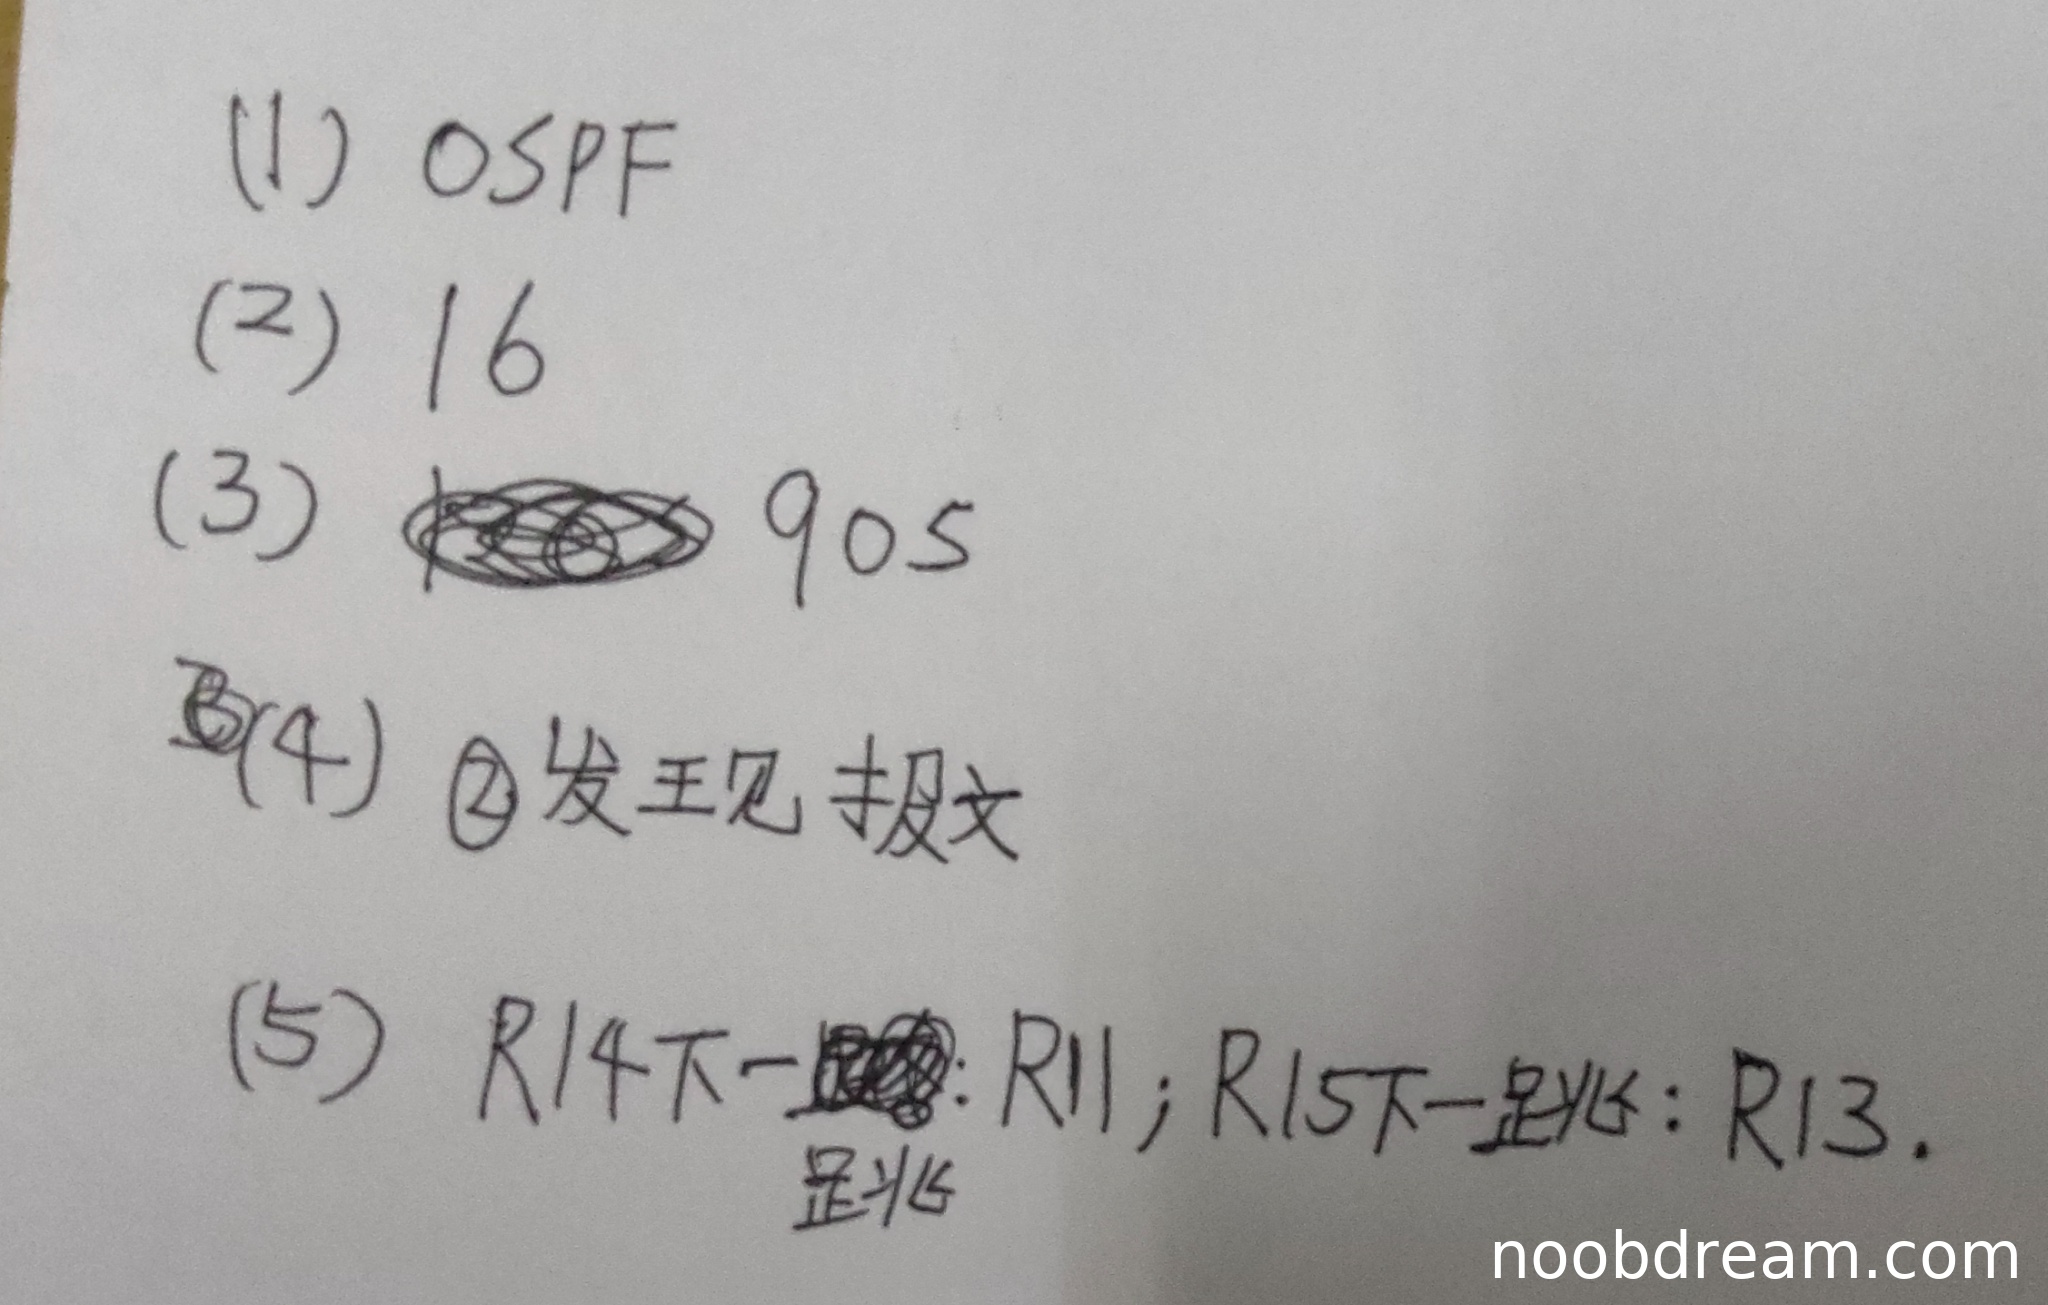 (1) OSPF
(2) 16
(3) 90s
(4) ②发现报文
(5) R14下一跳: R11; R15下一跳: R13.
noobdream.com